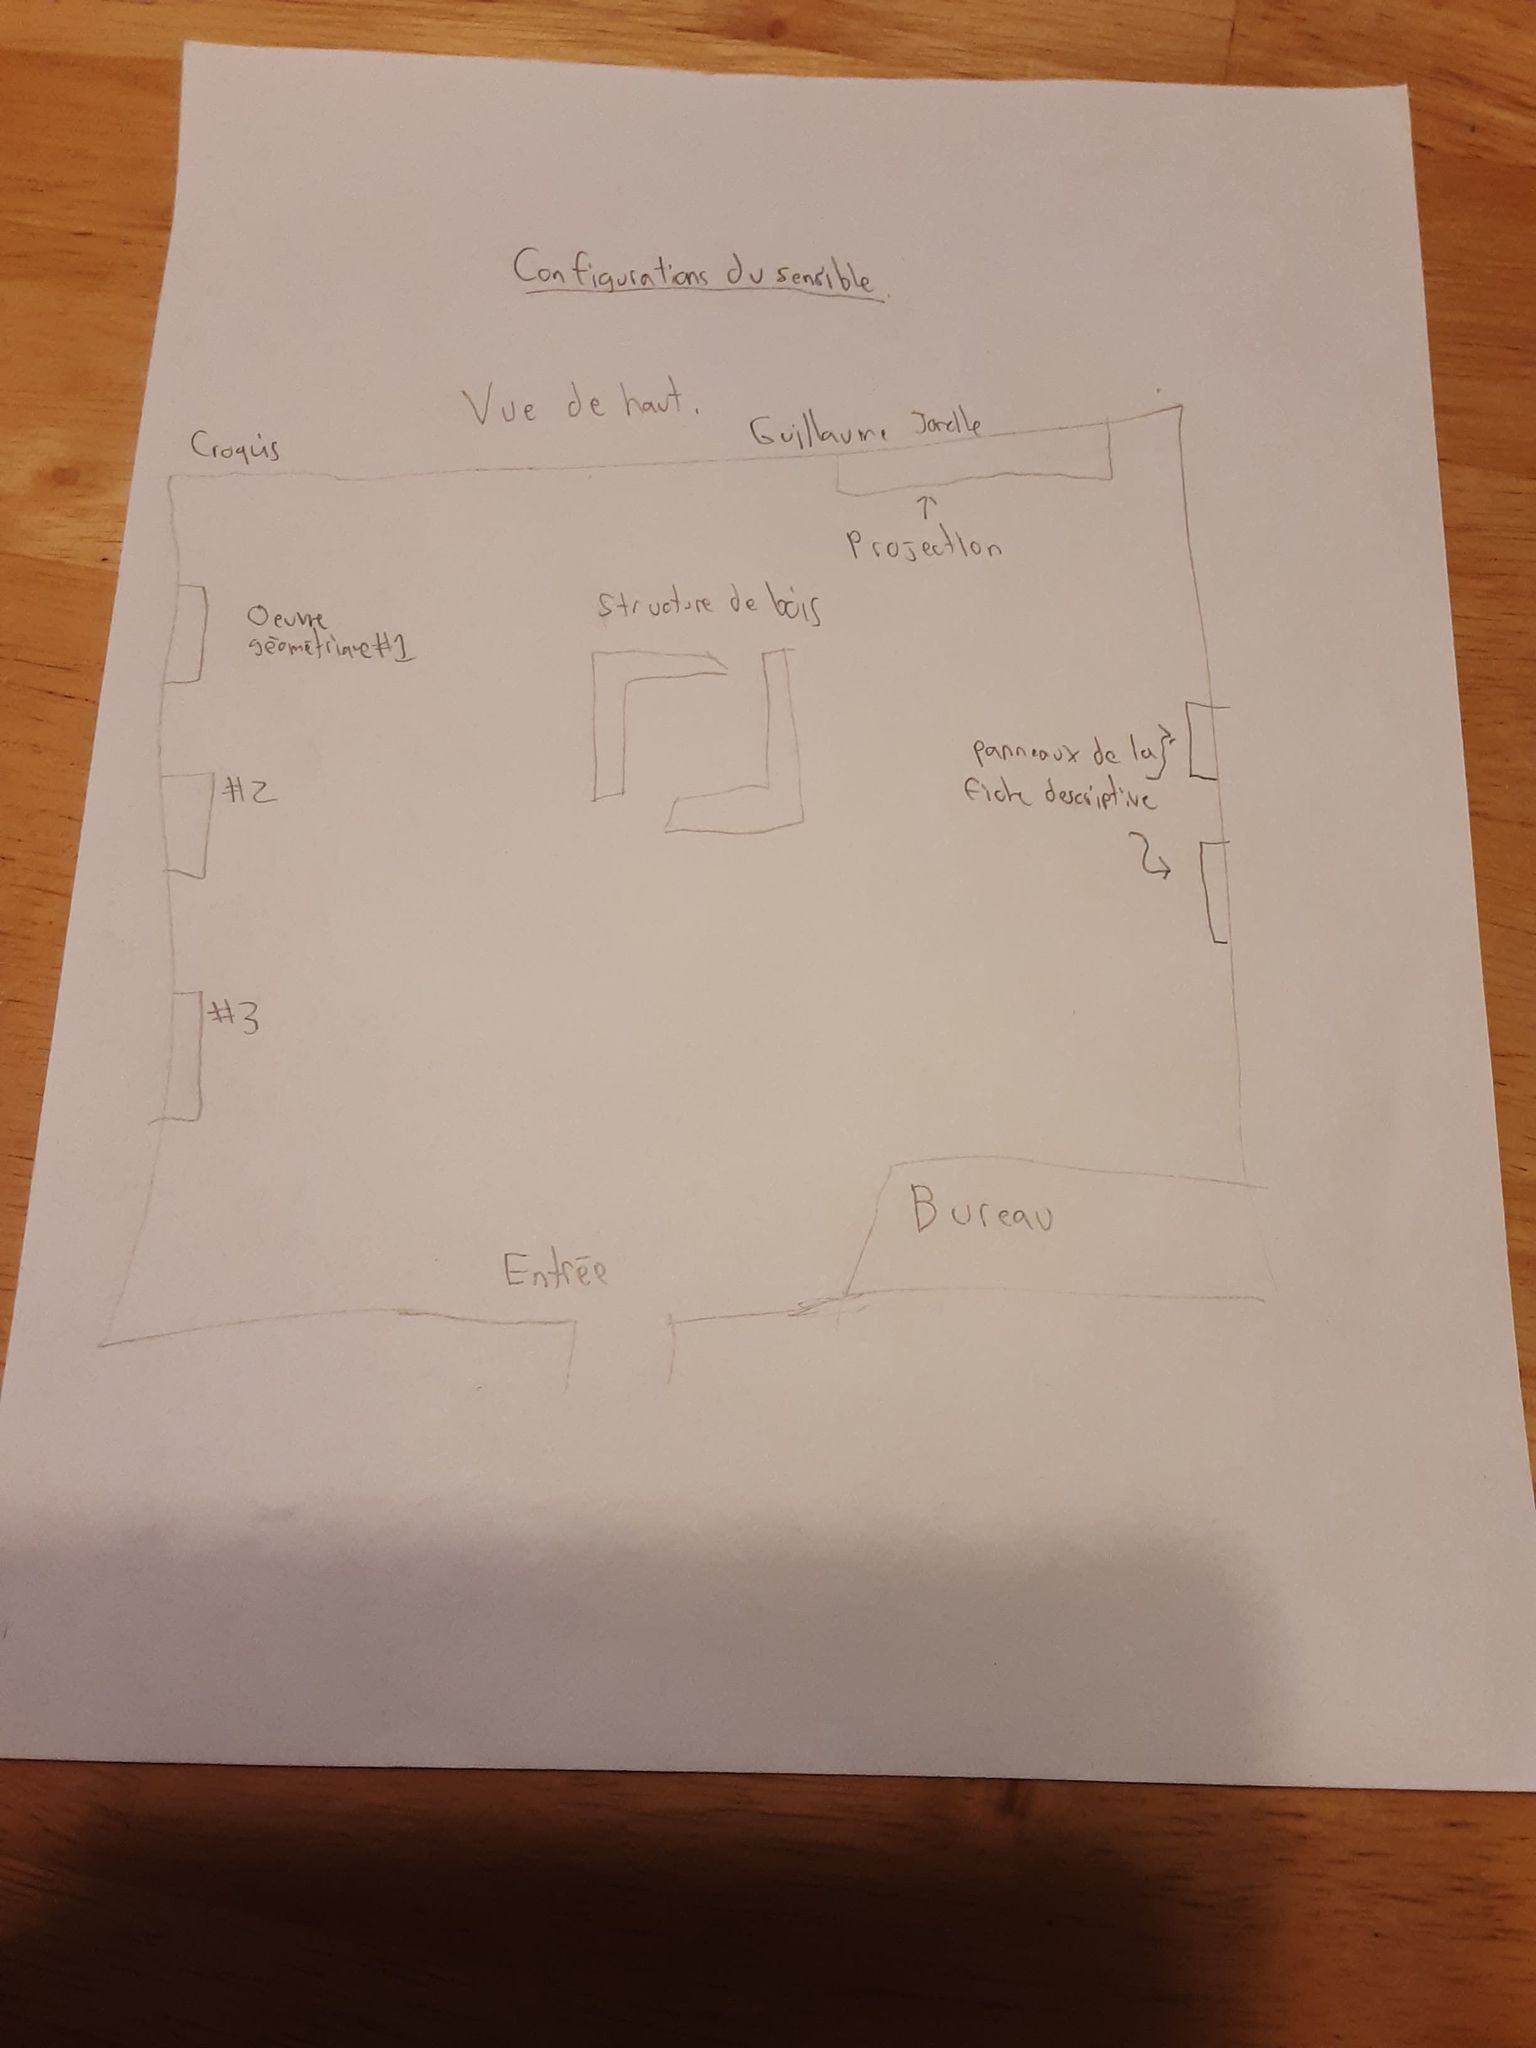 Configurations du sensible.
Vue de haut.
Croquis
Guillaume
Projection
Oeuvre
géométrique #1
Structure de bois
#2
panneaux de la
fiche descriptive
#3
Bureau
Entrée